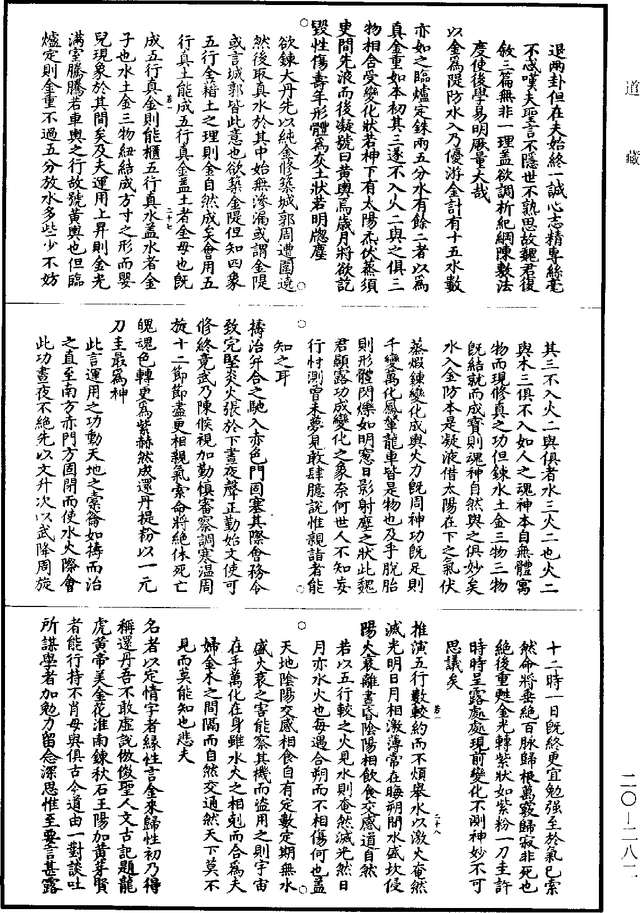 道藏
退兩卦但在夫始終一誠心志精專絲毫
不惑嘆夫聖言不隱世不熟思故魏君復
敘三篇無非一理蓋欲調析紀綱陳數法
度使後學易明厥量大哉
以金為隄防水入乃優游金計有十五水數
亦如之臨爐定銖兩五分水有餘二者以為
真金重如本初其三遂不入火二與之俱三
物相合受變化狀若神下有太陽炁伏蒸須
臾間先液而後凝號曰黃輿焉歲月將欲訖
毀性傷壽年形體為灰土狀若明牕塵
欲鍊大丹先以純金修築城郭周遭圍遶
然後取真水於其中始無滲漏或謂金隄
或言城郭皆此意也欲築金隄但知四象
五行全藉土之理則金自然成矣會用五
行真土能成五行真金蓋土者金母也旣
卷一
二十七
成五行真金則能櫃五行真水蓋水者金
子也水土金三物紐結成方寸之形而嬰
兒現象於其間矣及夫運用上昇則金光
滿室騰騰若車輿之行故號黃輿也但臨
爐定則金重不過五分放水多些少不妨
其三不入火二與俱者水三火二也火二
與木三俱不入如人之魂神本自無體寓
物而現修真之功但鍊水土金三物三物
旣結就而成寶則魂神自然與之俱妙矣
水入金防本是凝液借太陽在下之氣伏
蒸煅鍊變化成輿火力旣周神功旣足則
千變萬化鳳輦龍車皆是物也及乎脫胎
則形體閃爍如明窻日影射塵之狀此魏
君顯露功成變化之象奈何世人不知妄
行忖測曾未夢見敢肆臆說惟親詣者能
知之耳
擣治并合之馳入赤色門固塞其際會務令
致完堅炎火張於下晝夜聲正勤始文使可
修終竟武乃陳候視加勤慎審察調寒溫周
旋十二節節盡更相親氣索命將絕休死亡
魄魂色轉更為紫赫然成還丹提粉以一元
刀圭最為神
此言運用之功動天地之橐籥如擣而治
之直至南方赤門方固閉而使水火際會
此功晝夜不絕先以文升次以武降周旋
十二時一日旣終更宜勉强至於氣已索
然命將垂絕百脉歸根萬竅歸寂非死也
絕後重甦金光轉紫狀如紫粉一刀圭許
時時呈露處處現前變化不測神妙不可
思議矣
卷一
二十八
推演五行數較約而不煩舉水以激火奄然
滅光明日月相激薄常在晦朔間水盛坎侵
陽火衰離晝昏陰陽相飲食交感道自然
若以五行較之火見水則奄然滅光然日
月亦水火也每遇合朔而不相傷何也蓋
天地陰陽交感相食自有定數定期無水
盛火衰之害能察其機而盜用之則宇宙
在手萬化在身雖水火之相剋而合為夫
婦金木之間隔而自然交通然天下莫不
見而莫能知也悲夫
名者以定情字者緣性言金來歸性初乃得
稱還丹吾不敢虛說倣傚聖人文古記題龍
虎黃帝美金花淮南鍊秋石王陽加黃芽賢
者能行持不肖毋與俱古今道由一對談吐
所謀學者加勉力留念深思惟至要言甚露
二〇—一八二